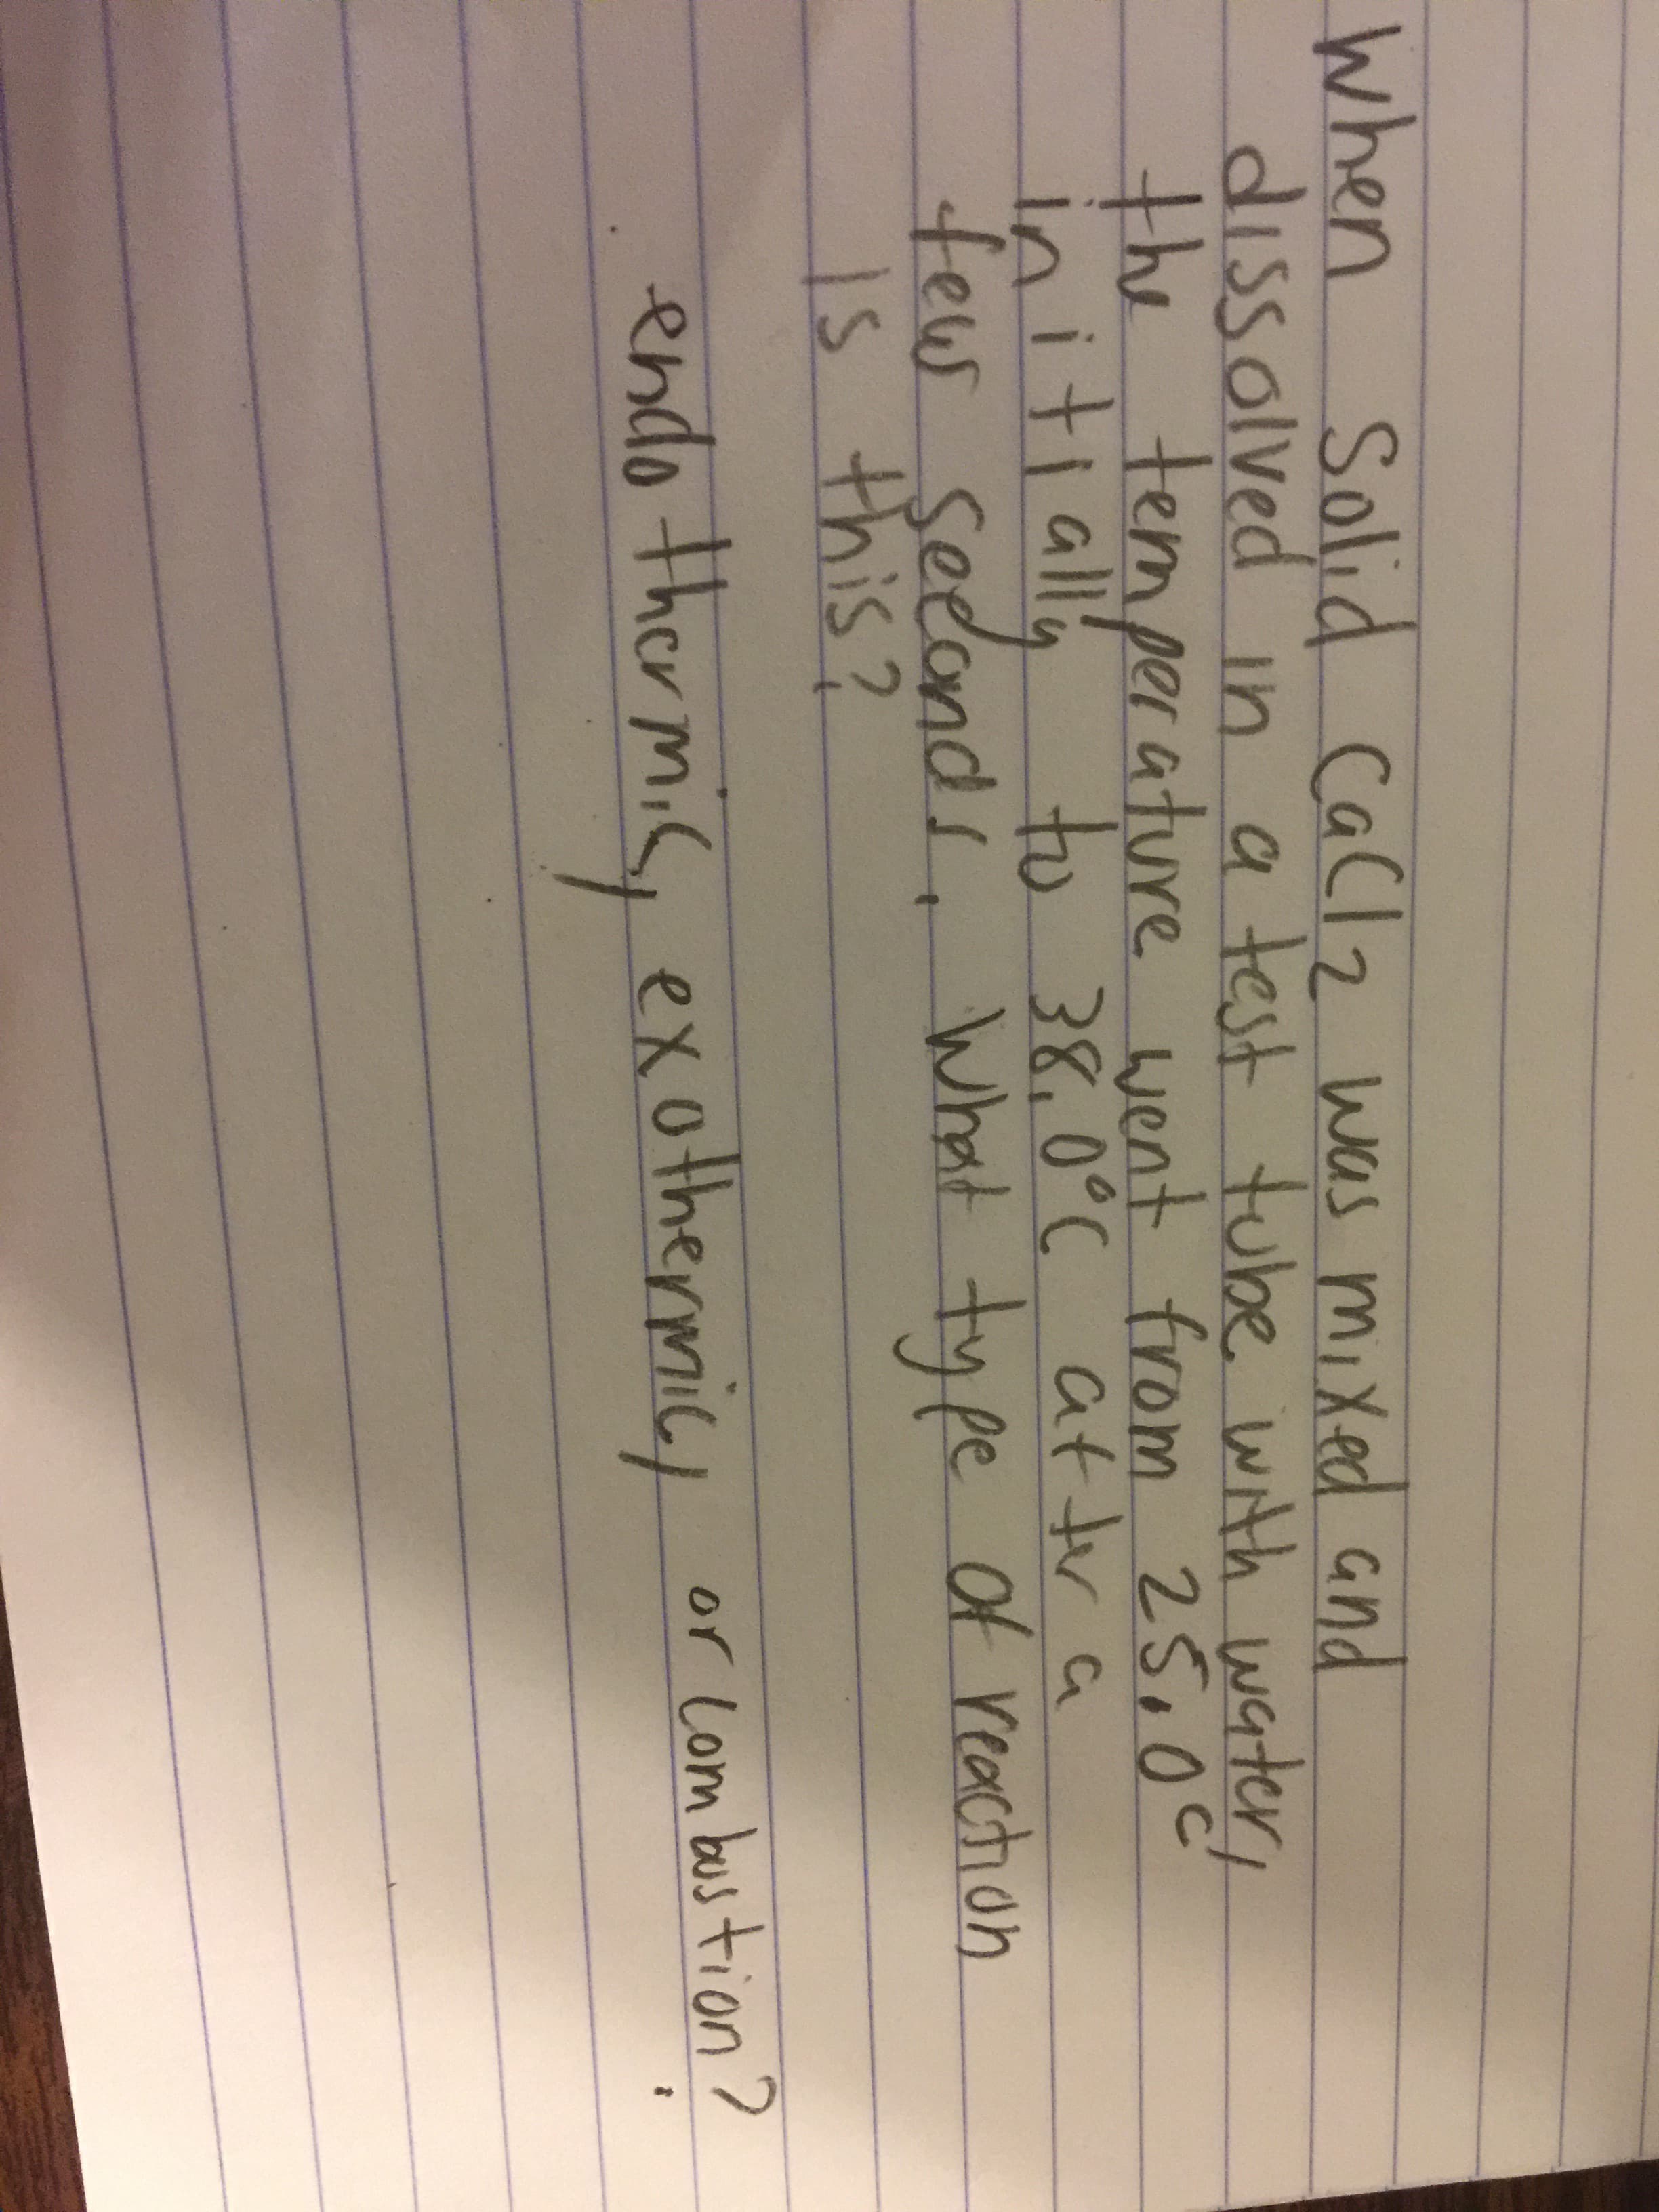 When Solid CaCl2 was mixed and
dissolved in a test tube with water,
the temperature went from 25.0°C
initially to 38.0°C after a
few seconds. What type of reaction
is this?
endothermic, exothermic, or combustion?